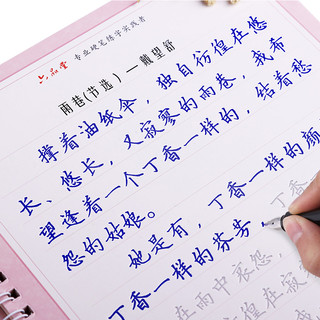 六品堂 专业硬笔练字实践者
雨巷(节选) — 戴望舒
撑着油纸伞，独自彷徨在悠
长、悠长，又寂寥的雨巷，我希
望逢着一个丁香一样的，结着愁
怨的姑娘。
她是有，丁香一样的颜
丁香一样的芬芳，丁香
在雨中哀怨，
徨在寂寥